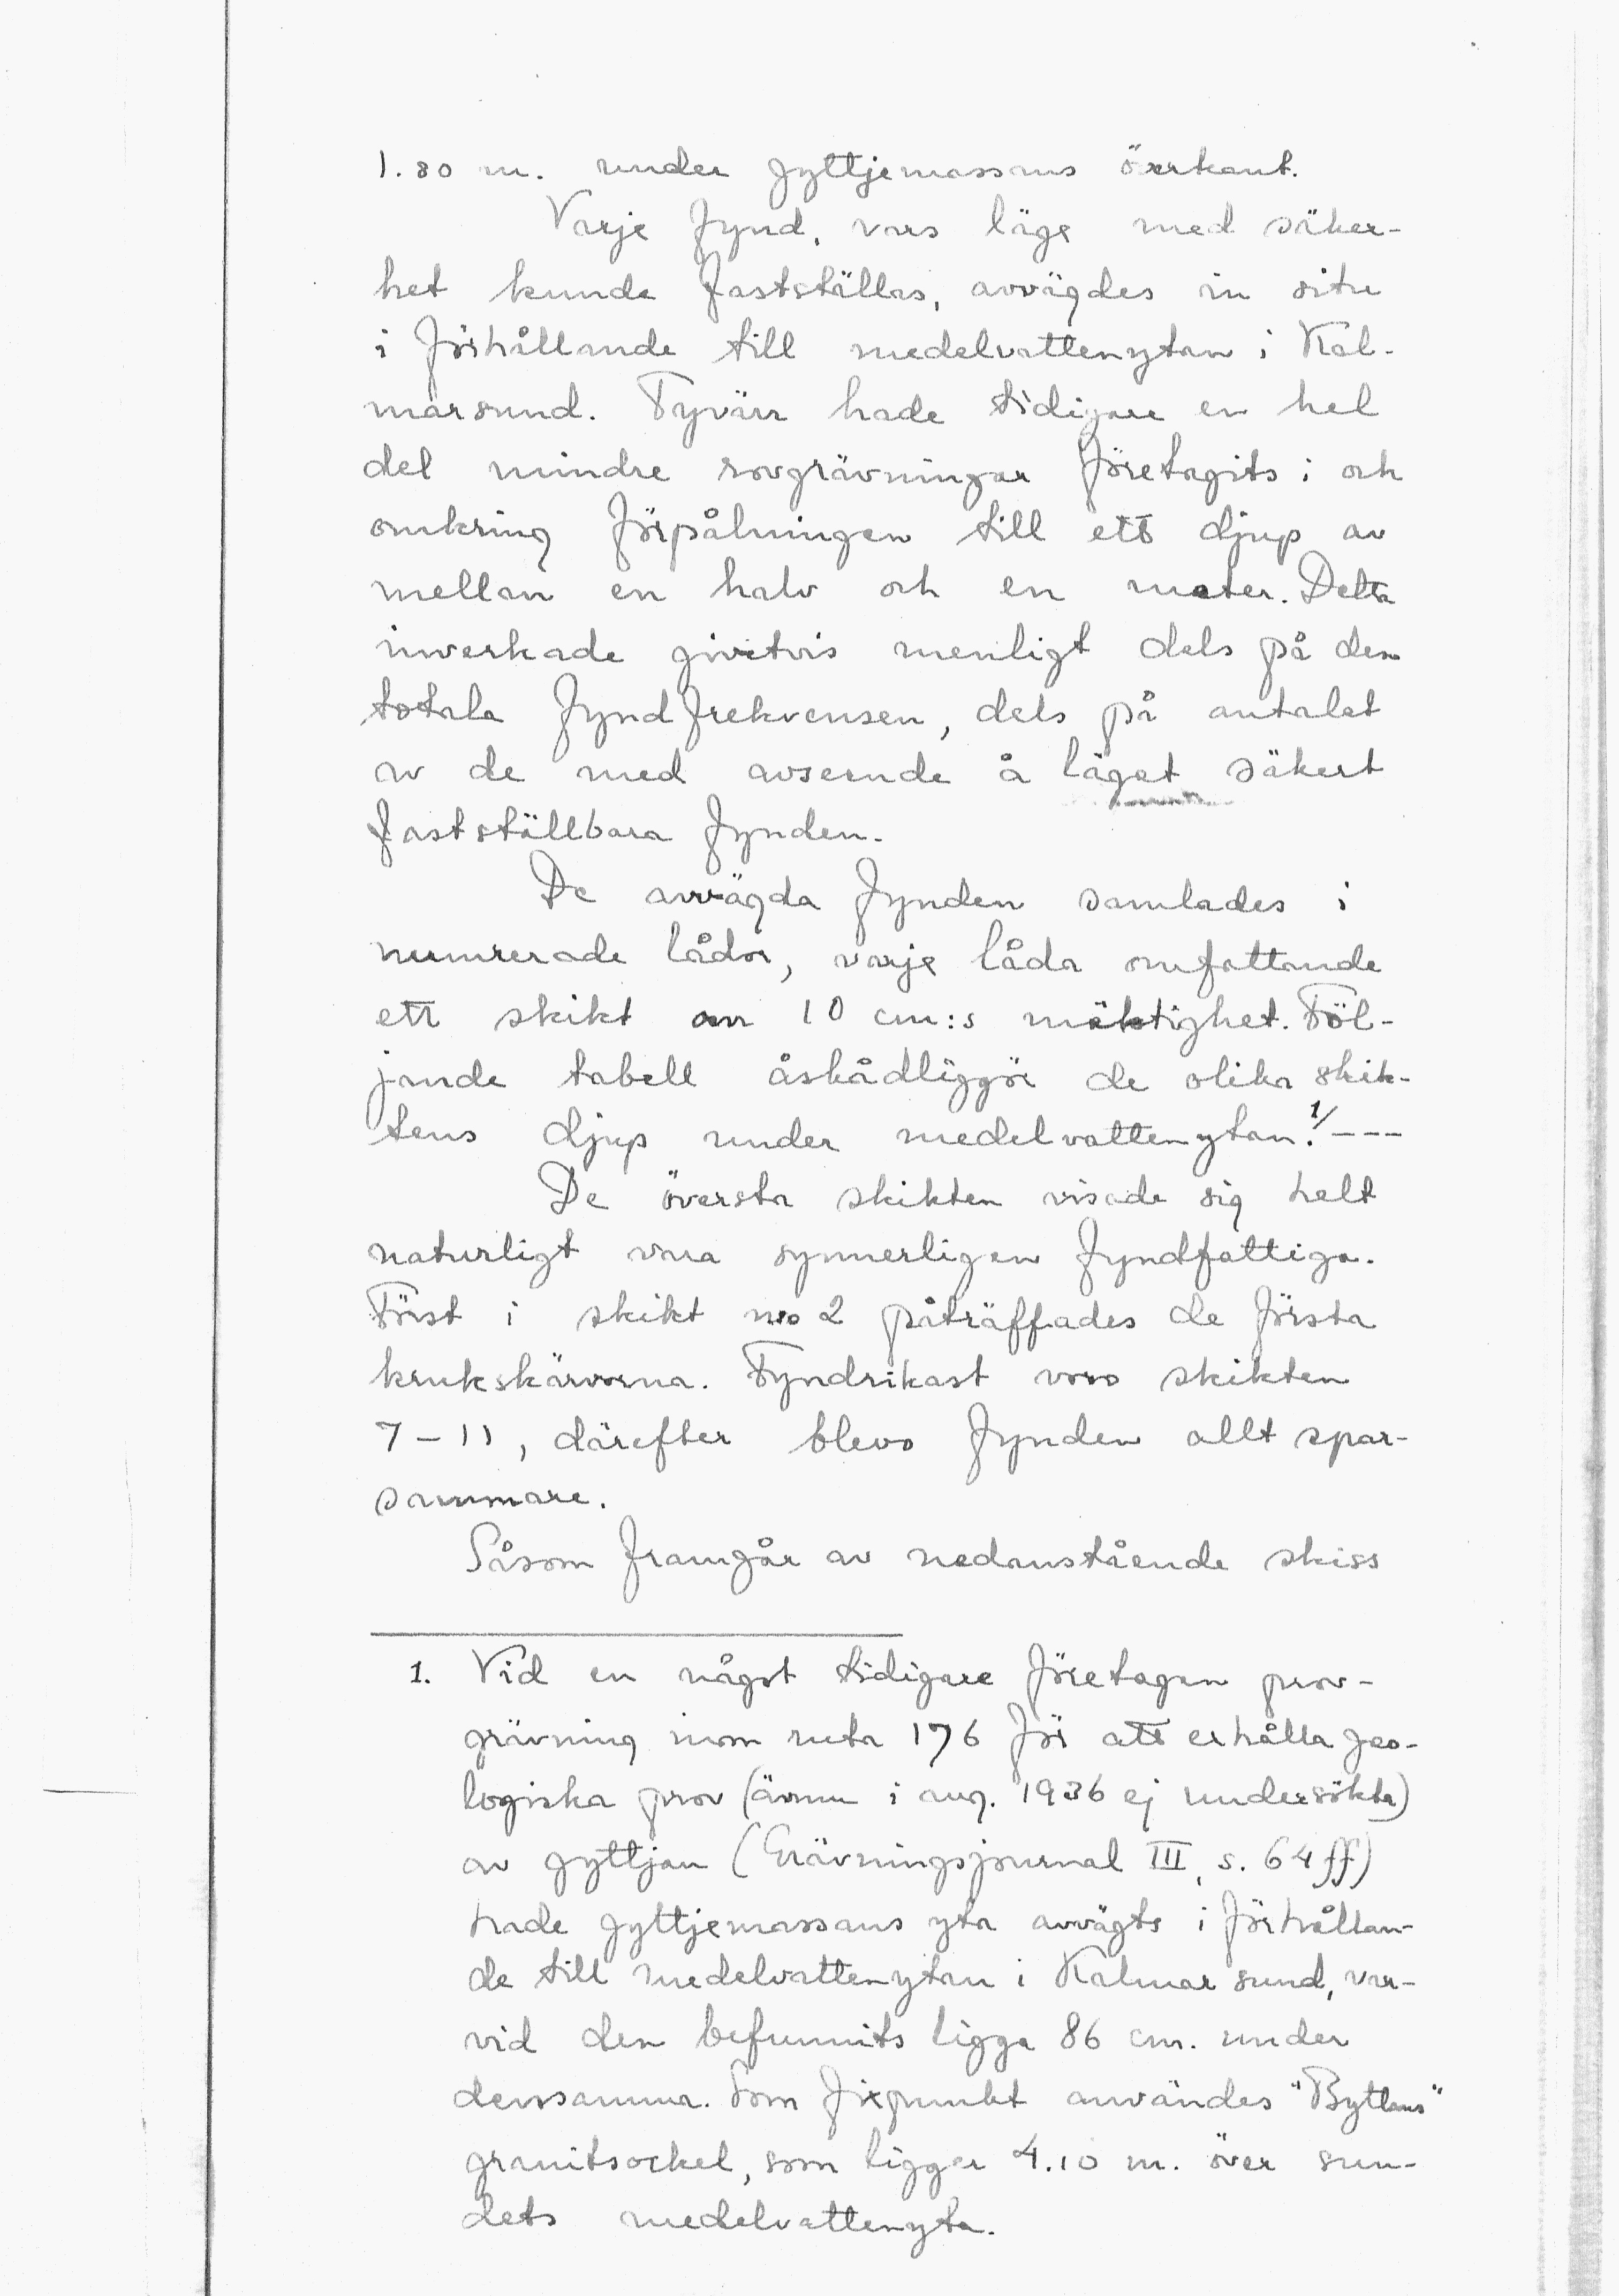 1.80 m. under gyttjemassans överkant.
Varje fynd, vars läge med säker-
het kunde fastställas, avvägdes in situ
i förhållande till medelvattenytan i Kal-
marsund. Tyvärr hade tidigare en hel
del mindre rovgrävningar företagits i och
omkring förpålningen till ett djup av
mellan en halv och en meter. Detta
inverkade givetvis menligt dels på den
totala fyndfrekvensen, dels på antalet
av de med avseende å läget säkert
fastställbara fynden.
De avvägda fynden samlades i
numrerade lådor, varje låda omfattande
ett skikt av 10 cm:s mäktighet. Föl-
jande tabell åskådliggör de olika skik-
tens djup under medelvattenytan.1/ ---
De översta skikten visade sig helt
naturligt vara synnerligen fyndfattiga.
Först i skikt no 2 påträffades de första
krukskärvorna. Fyndrikast voro skikten
7-11, därefter blevo fynden allt spar-
sammare.
Såsom framgår av nedanstående skiss
1. Vid en något tidigare företagen prov-
grävning inom ruta 176 för att erhålla geo-
logiska prov (ännu i aug. 1936 ej undersökta)
av gyttjan (Grävningsjournal III, s. 64 ff)
hade gyttjemassans yta avvägts i förhållan-
de till medelvattenytan i Kalmar sund, var-
vid den befunnits ligga 86 cm. under
densamma. Som fixpunkt användes "Byttans"
granitsockel, som ligger 4.10 m. över sun-
dets medelvattenyta.